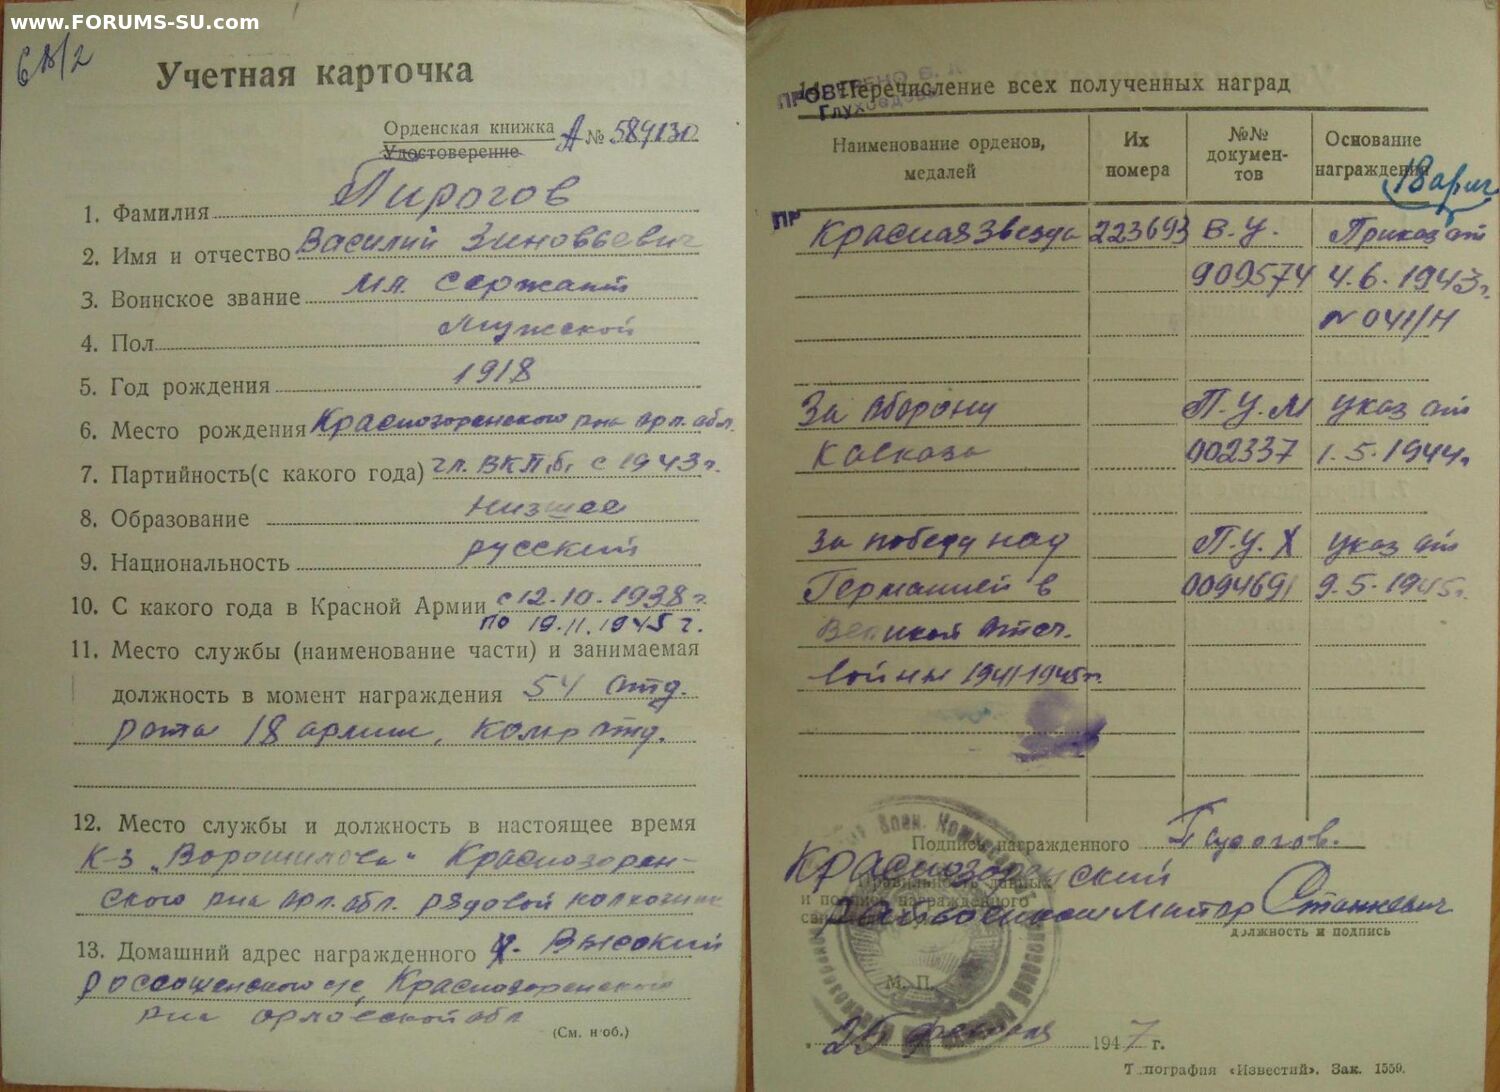 www.FORUMS-SU.com
Учетная карточка
Орденская книжка А № 584130
Удостоверение
1. Фамилия Пирогов
2. Имя и отчество Василий Зиновьевич
3. Воинское звание Мл. сержант
4. Пол Мужской
5. Год рождения 1918
6. Место рождения Краснозоренского р-на Орл. обл.
7. Партийность (с какого года) чл. ВКП.б. с 1943 г.
8. Образование низшее
9. Национальность русский
10. С какого года в Красной Армии с 12.10.1938 г.
по 19.11.1945 г.
11. Место службы (наименование части) и занимаемая
должность в момент награждения 54 отд.
рота 18 армии, ком-р отд.
12. Место службы и должность в настоящее время
к-з „Ворошилова“ Краснозорен-
ского р-на Орл. обл. рядовой колхозник
13. Домашний адрес награжденного Высокий
Россошенского с/с, Краснозоренского
р-на Орловской обл
(См. н/об.)
ПРОВЕРЕНО
14. Перечисление всех полученных наград
Наименование орденов, медалей
Их номера
№№ докумен-тов
Основание награждения
18 арм
ПР
Красная Звезда 223693 В.У. Приказ от
909574 4.6.1943 г.
№ 041/Н
За оборону П.У.М указ от
Кавказа 002337 1.5.1944 г.
За победу над П.У.Х указ от
Германией в 0094691 9.5.1945 г.
Великой Отеч.
войны 1941-1945 г.
Подпись награжденного Пирогов.
Краснозоренский
Правильность данных
и подпись награжденного
Райвоенком Майор Станкевич
должность и подпись
М. П.
25 февраля 1947 г.
Типография «Известий». Зак. 1559.